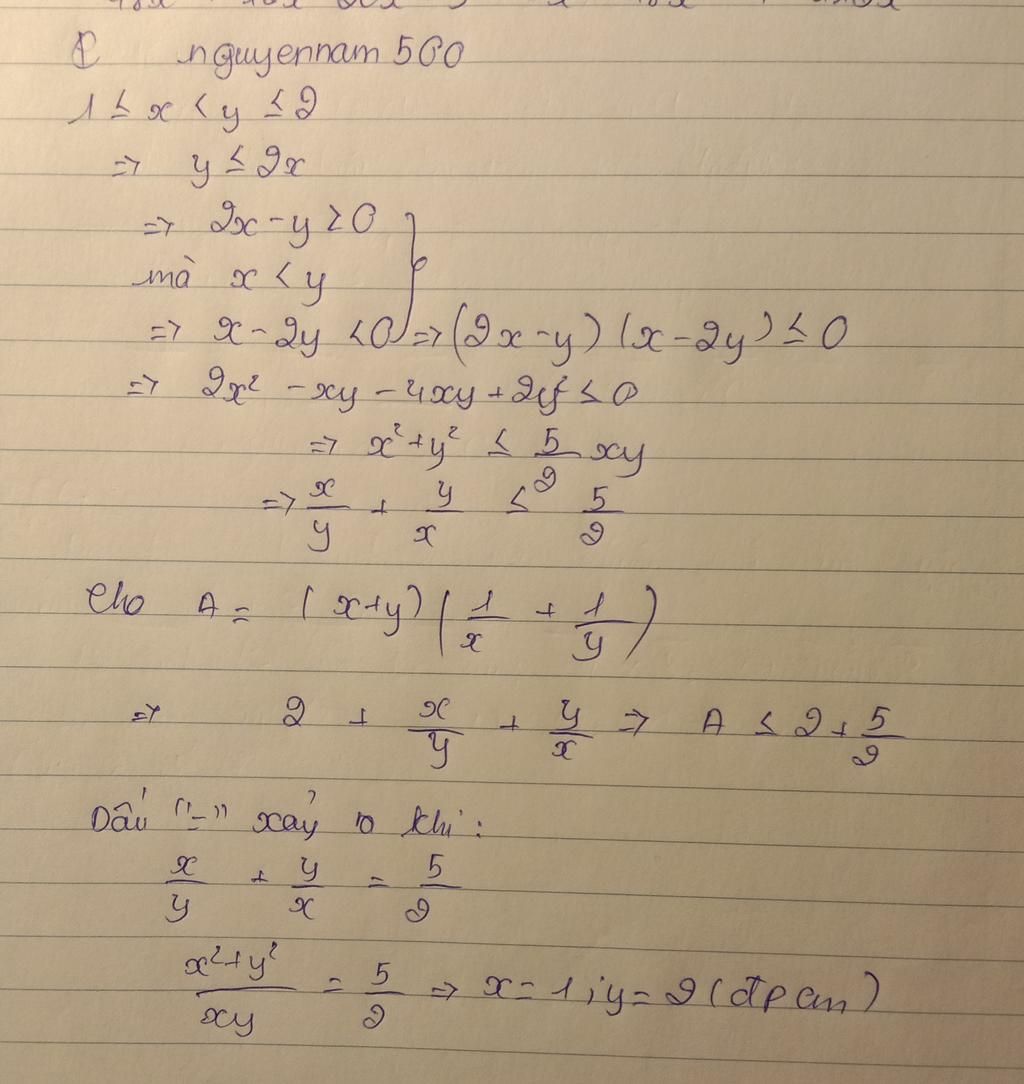 nguyennam 500
1 ≤ x < y ≤ 2
=> y ≤ 2x
=> 2x - y ≥ 0
mà x < y
=> x - 2y < 0 => (2x - y) (x - 2y) ≤ 0
=> 2x² - xy - 4xy + 2y² ≤ 0
=> x² + y² ≤ 5/2 xy
=> x/y + y/x ≤ 5/2
Cho A = (x+y) (1/x + 1/y)
=> 2 + x/y + y/x => A ≤ 2 + 5/2
Dấu "=" xảy ra khi:
x/y + y/x = 5/2
x²+y²/xy = 5/2 => x = 1; y = 2 (đpcm)